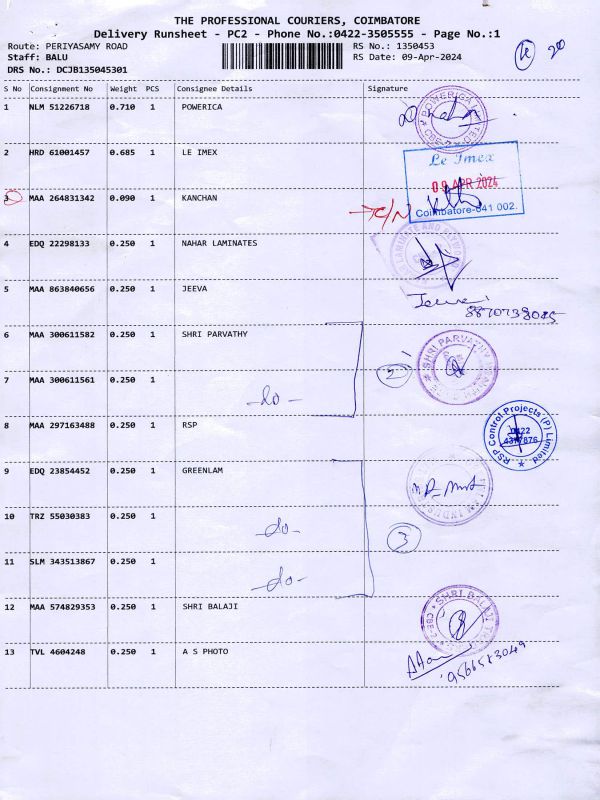 THE PROFESSIONAL COURIERS, COIMBATORE
Delivery Runsheet - PC2 - Phone No.:0422-3505555 - Page No.:1
Route: PERIYASAMY ROAD
RS No.: 1350453
Staff: BALU
RS Date: 09-Apr-2024
DRS No.: DCJB135045301
20
S No Consignment No Weight PCS Consignee Details Signature
1 NLM 51226718 0.710 1 POWERICA
POWERICA LIMITED
2 HRD 61001457 0.685 1 LE IMEX
Le Imex
09 APR 2024
Coimbatore-641 002.
3 MAA 264831342 0.090 1 KANCHAN
4 EDQ 22298133 0.250 1 NAHAR LAMINATES
5 MAA 863840656 0.250 1 JEEVA
6 MAA 300611582 0.250 1 SHRI PARVATHY
SHRI PARVATHY
7 MAA 300611561 0.250 1 -do-
2
8 MAA 297163488 0.250 1 RSP
RSP Control Projects (P) Limited
0422
9 EDQ 23854452 0.250 1 GREENLAM
10 TRZ 55030383 0.250 1 -do-
3
11 SLM 343513867 0.250 1 -do-
12 MAA 574829353 0.250 1 SHRI BALAJI
SHRI BALAJI
13 TVL 4604248 0.250 1 A S PHOTO